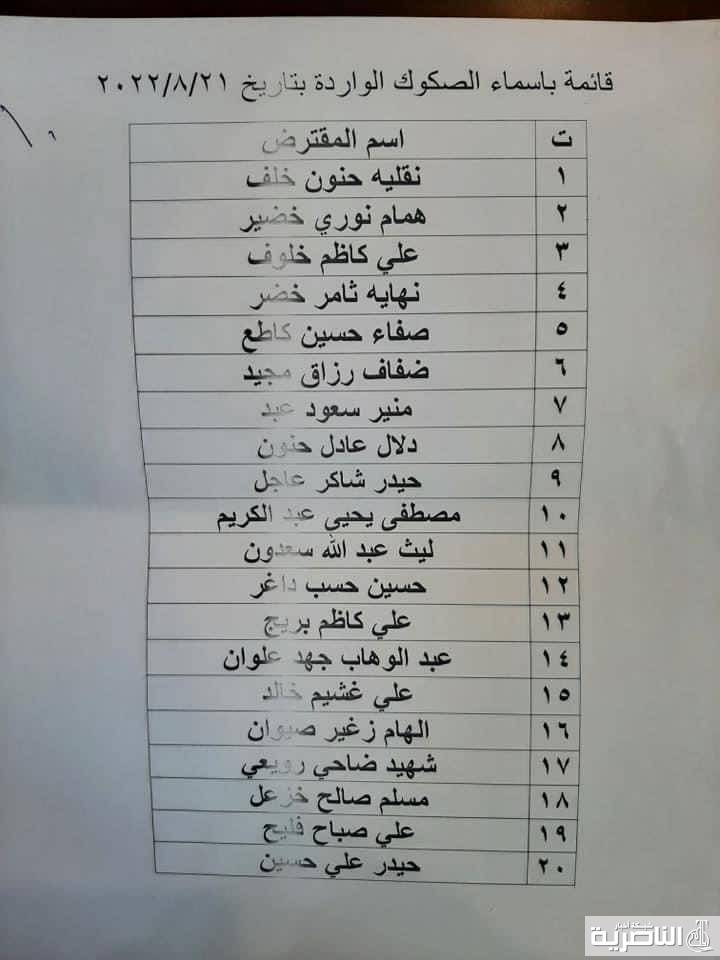 قائمة باسماء الصكوك الواردة بتاريخ ٢٠٢٢/٨/٢١
ت اسم المقترض
١ نقليه حنون خلف
٢ همام نوري خضير
٣ علي كاظم خلوف
٤ نهايه ثامر خضر
٥ صفاء حسين كاطع
٦ ضفاف رزاق مجيد
٧ منير سعود عبد
٨ دلال عادل حنون
٩ حيدر شاكر عاجل
١٠ مصطفى يحيى عبد الكريم
١١ ليث عبد الله سعدون
١٢ حسين حسب داغر
١٣ علي كاظم بريج
١٤ عبد الوهاب جهد علوان
١٥ علي غشيم خالد
١٦ الهام زغير صيوان
١٧ شهيد ضاحي رويعي
١٨ مسلم صالح خزعل
١٩ علي صباح فليح
٢٠ حيدر علي حسين
شبكة اخبار
الناصرية